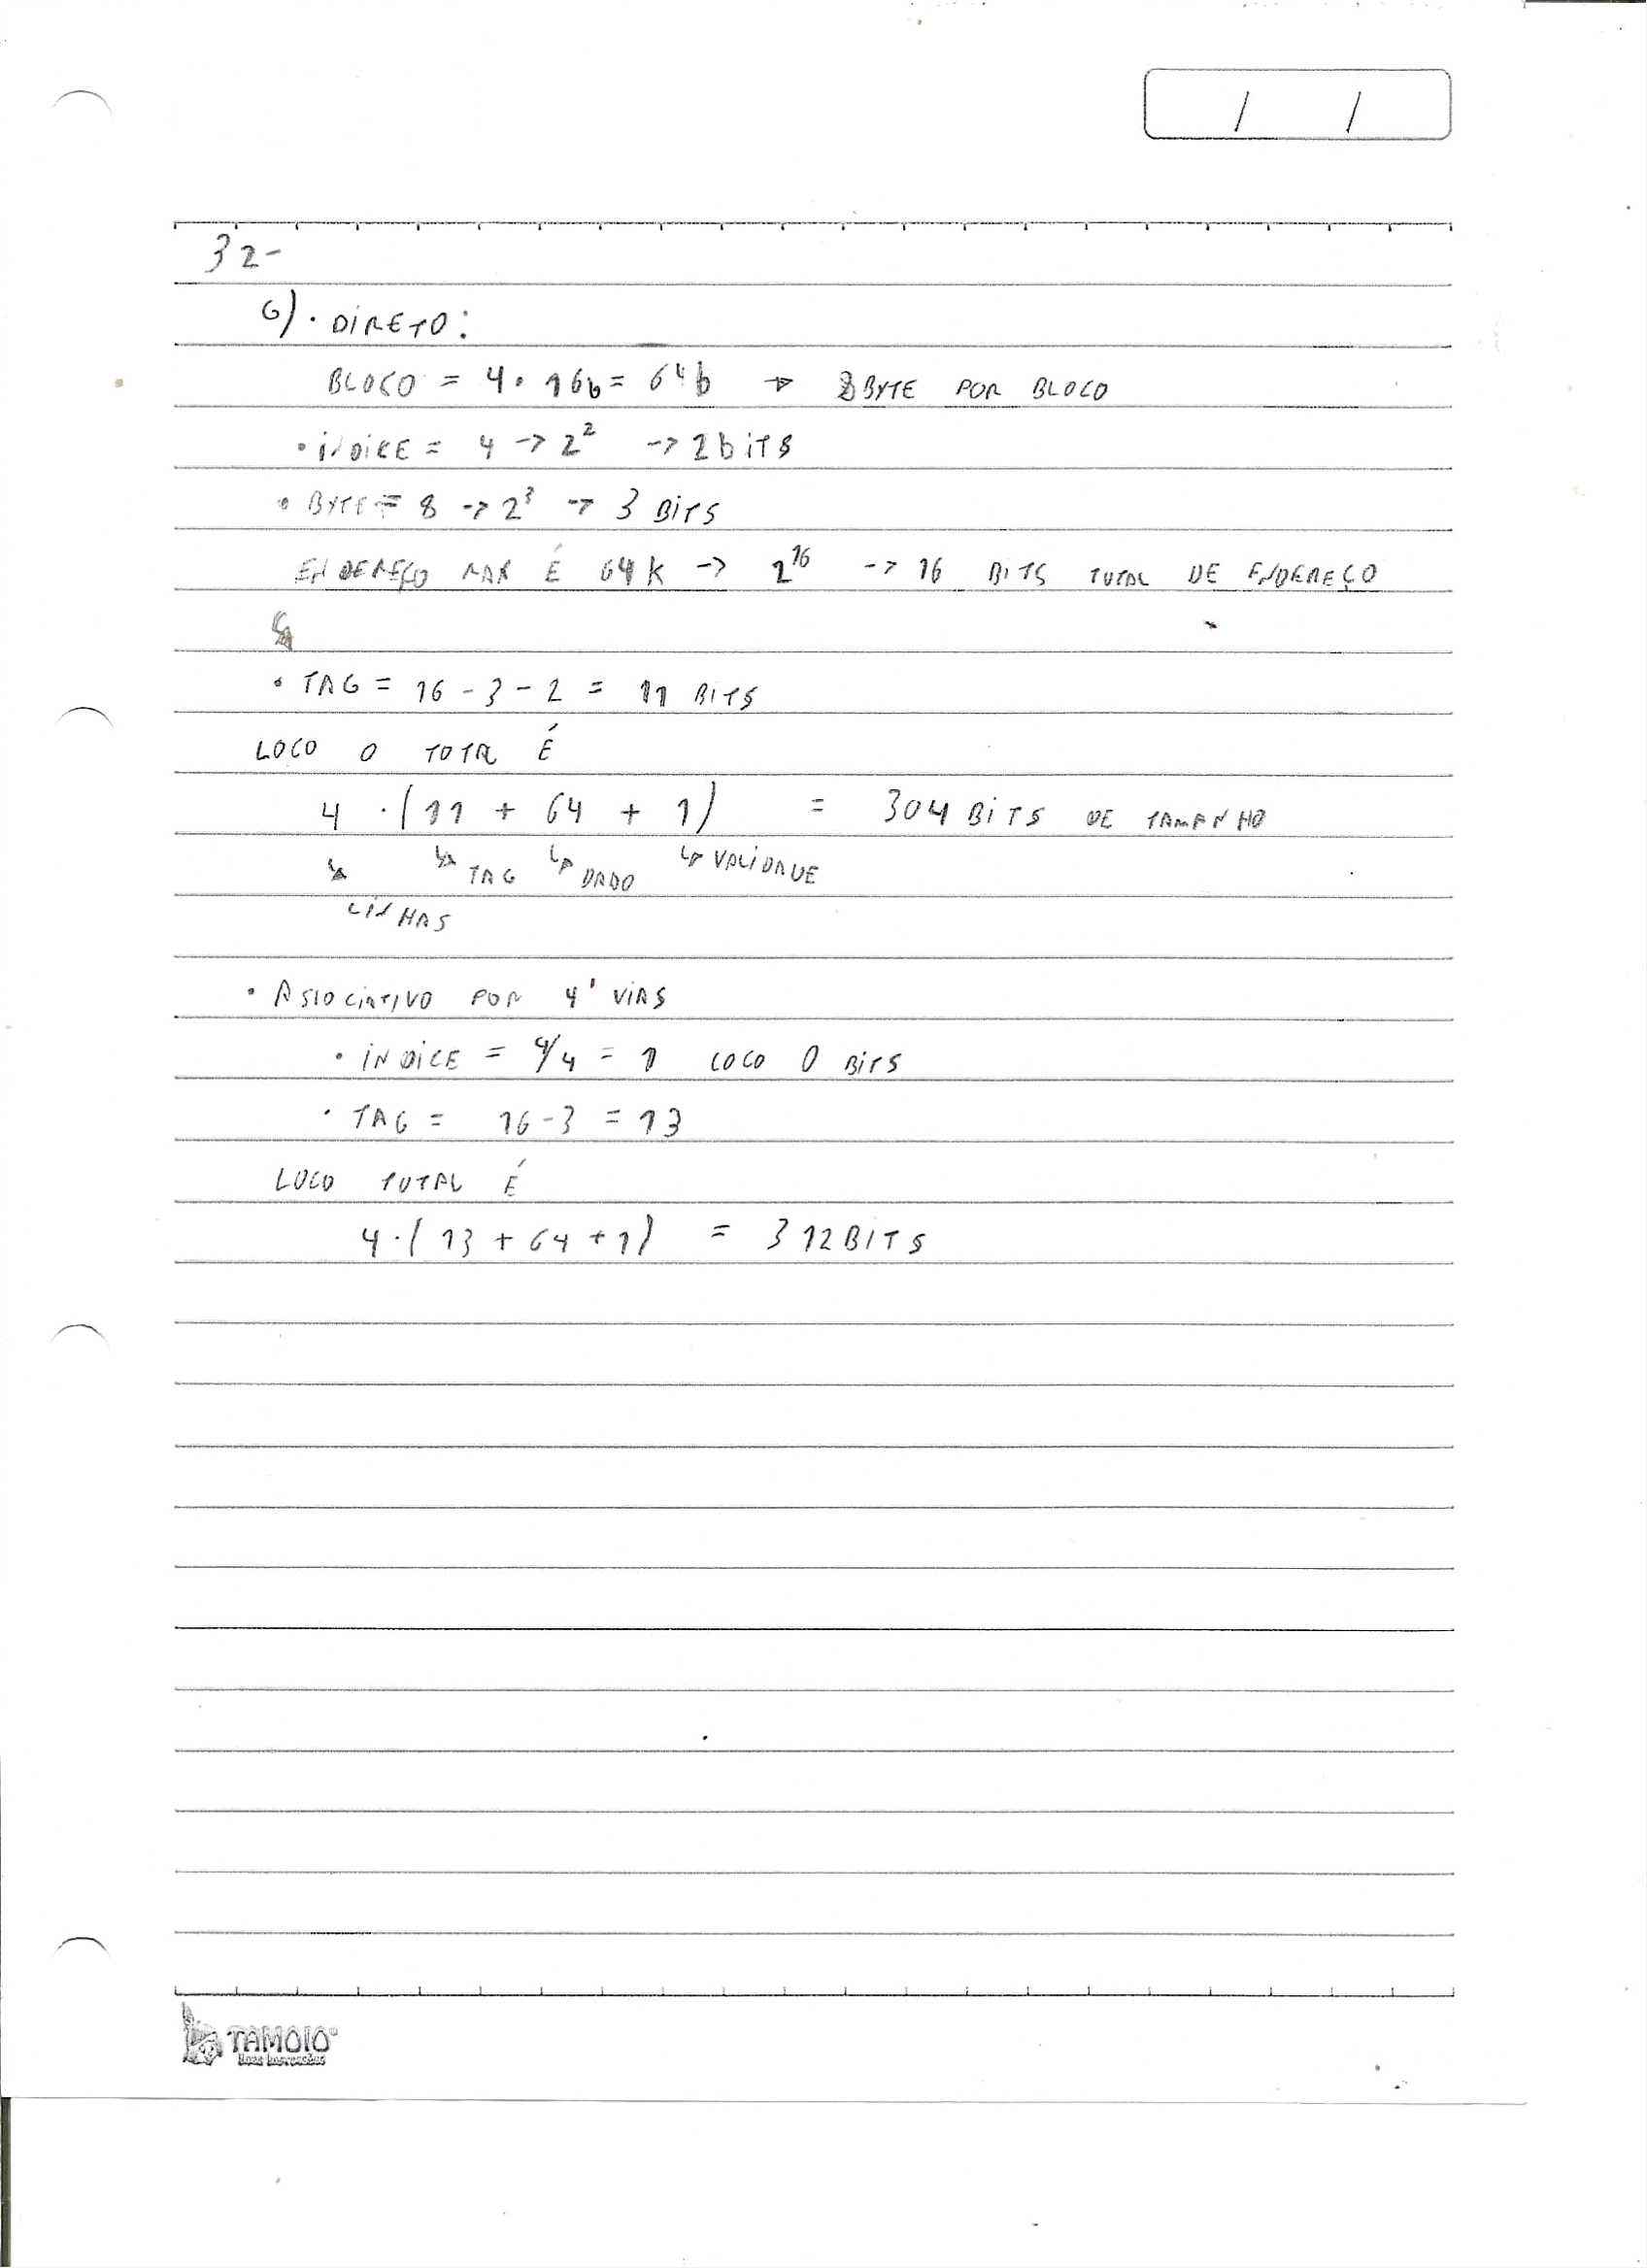 / /
32-
G) · DIRETO:
BLOCO = 4 · 16b = 64b → 8 BYTE POR BLOCO
· INDICE = 4 -> 2² -> 2 bITS
· BYTE = 8 -> 2³ -> 3 BITS
ENDEREÇO MAX É 64K -> 2¹⁶ -> 16 BITS TOTAL DE ENDEREÇO
· TAG = 16 - 3 - 2 = 11 BITS
LOGO O TOTAL É
4 · (11 + 64 + 1) = 304 BITS DE TAMANHO
↳ ↳ TAG ↳ DADO ↳ VALIDADE
LINHAS
· ASSOCIATIVO POR 4 VIAS
· INDICE = 4/4 = 1 LOGO 0 BITS
· TAG = 16 - 3 = 13
LOGO TOTAL É
4 · (13 + 64 + 1) = 312 BITS
TAMOIO